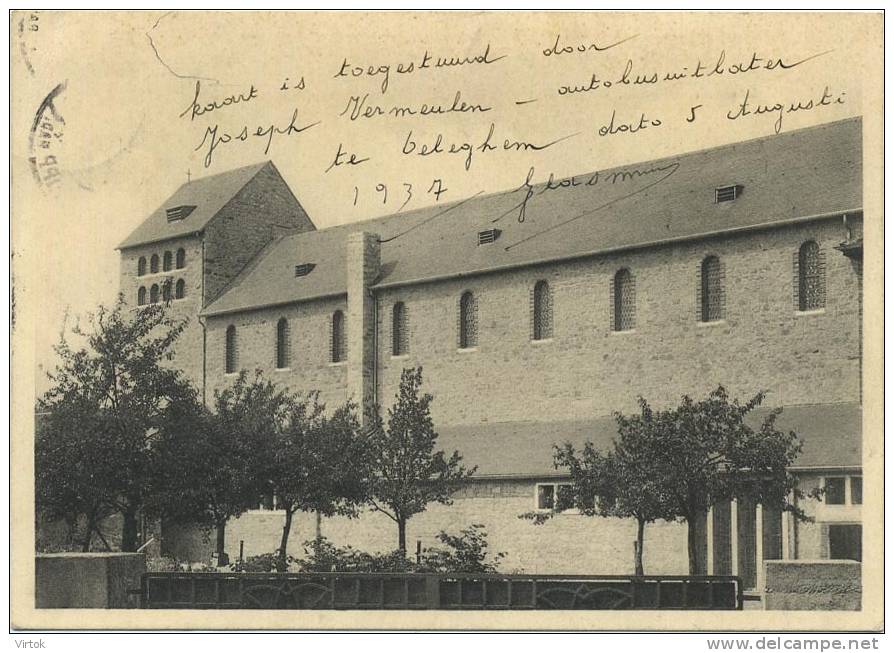 kaart is toegestuurd door
Joseph Vermeulen – autobusuitbater
te beleghem dato 5 Augusti
1937
Virtok
www.delcampe.net